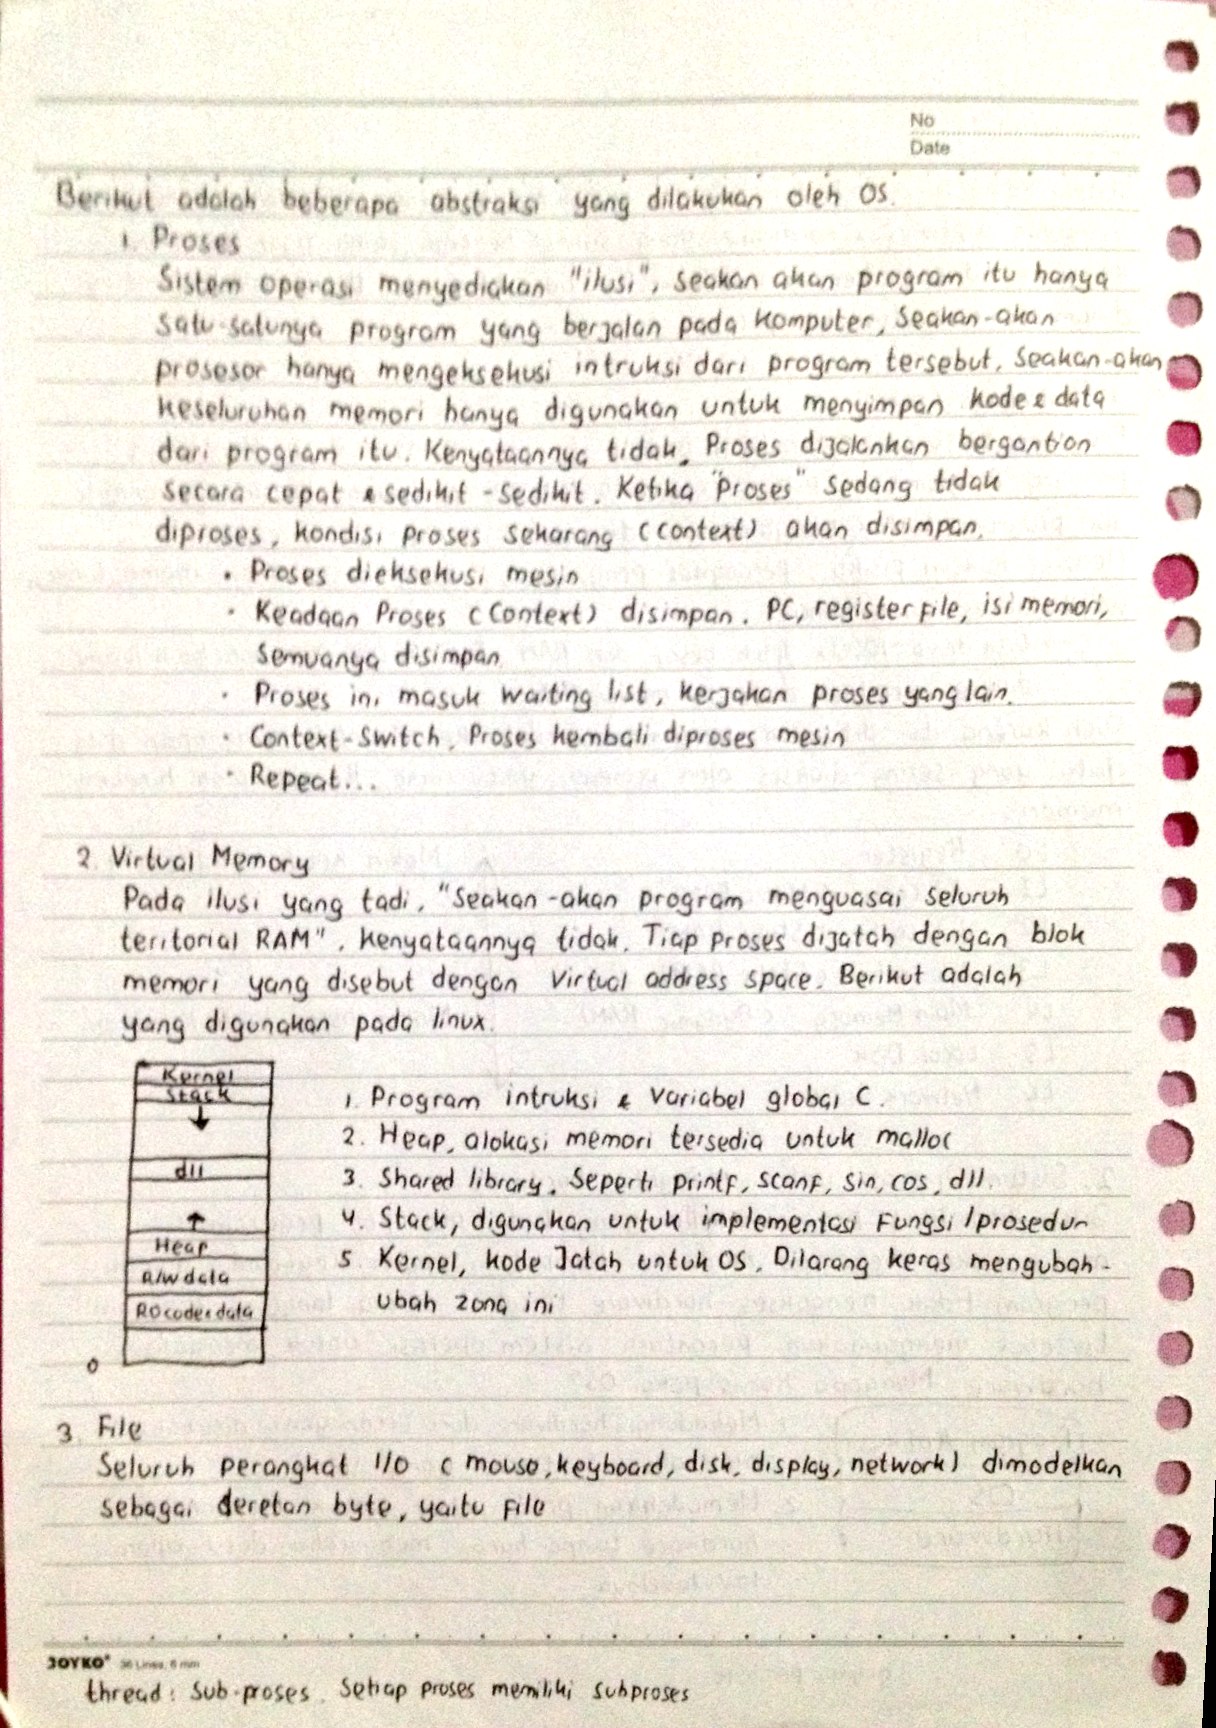 No
Date
Berikut adalah beberapa abstraksi yang dilakukan oleh OS.
1. Proses
Sistem operasi menyediakan "ilusi", seakan akan program itu hanya
satu-satunya program yang berjalan pada komputer, seakan-akan
prosesor hanya mengeksekusi intruksi dari program tersebut, seakan-akan
keseluruhan memori hanya digunakan untuk menyimpan kode & data
dari program itu. Kenyataannya tidak. Proses dijalankan bergantian
secara cepat & sedikit-sedikit. Ketika "Proses" sedang tidak
diproses, kondisi proses sekarang (context) akan disimpan.
• Proses dieksekusi mesin
• Keadaan Proses (Context) disimpan. PC, register file, isi memori,
semuanya disimpan
• Proses ini masuk waiting list, kerjakan proses yang lain.
• Context-Switch. Proses kembali diproses mesin
• Repeat...
2. Virtual Memory
Pada ilusi yang tadi, "Seakan-akan program menguasai seluruh
teritorial RAM", kenyataannya tidak. Tiap proses dijatah dengan blok
memori yang disebut dengan Virtual address space. Berikut adalah
yang digunakan pada linux.
Kernel
Stack
↓
dll
↑
Heap
R/W data
RO code & data
0
1. Program intruksi & Variabel global C.
2. Heap, alokasi memori tersedia untuk malloc
3. Shared library. Seperti printf, scanf, sin, cos, dll.
4. Stack, digunakan untuk implementasi Fungsi/prosedur
5. Kernel, kode Jatah untuk OS. Dilarang keras mengubah-
ubah zona ini
3. File
Seluruh perangkat I/O (mouse, keyboard, disk, display, network) dimodelkan
sebagai deretan byte, yaitu file
JOYKO 36 Lines, 6 mm
thread: Sub-proses. Setiap proses memiliki subproses